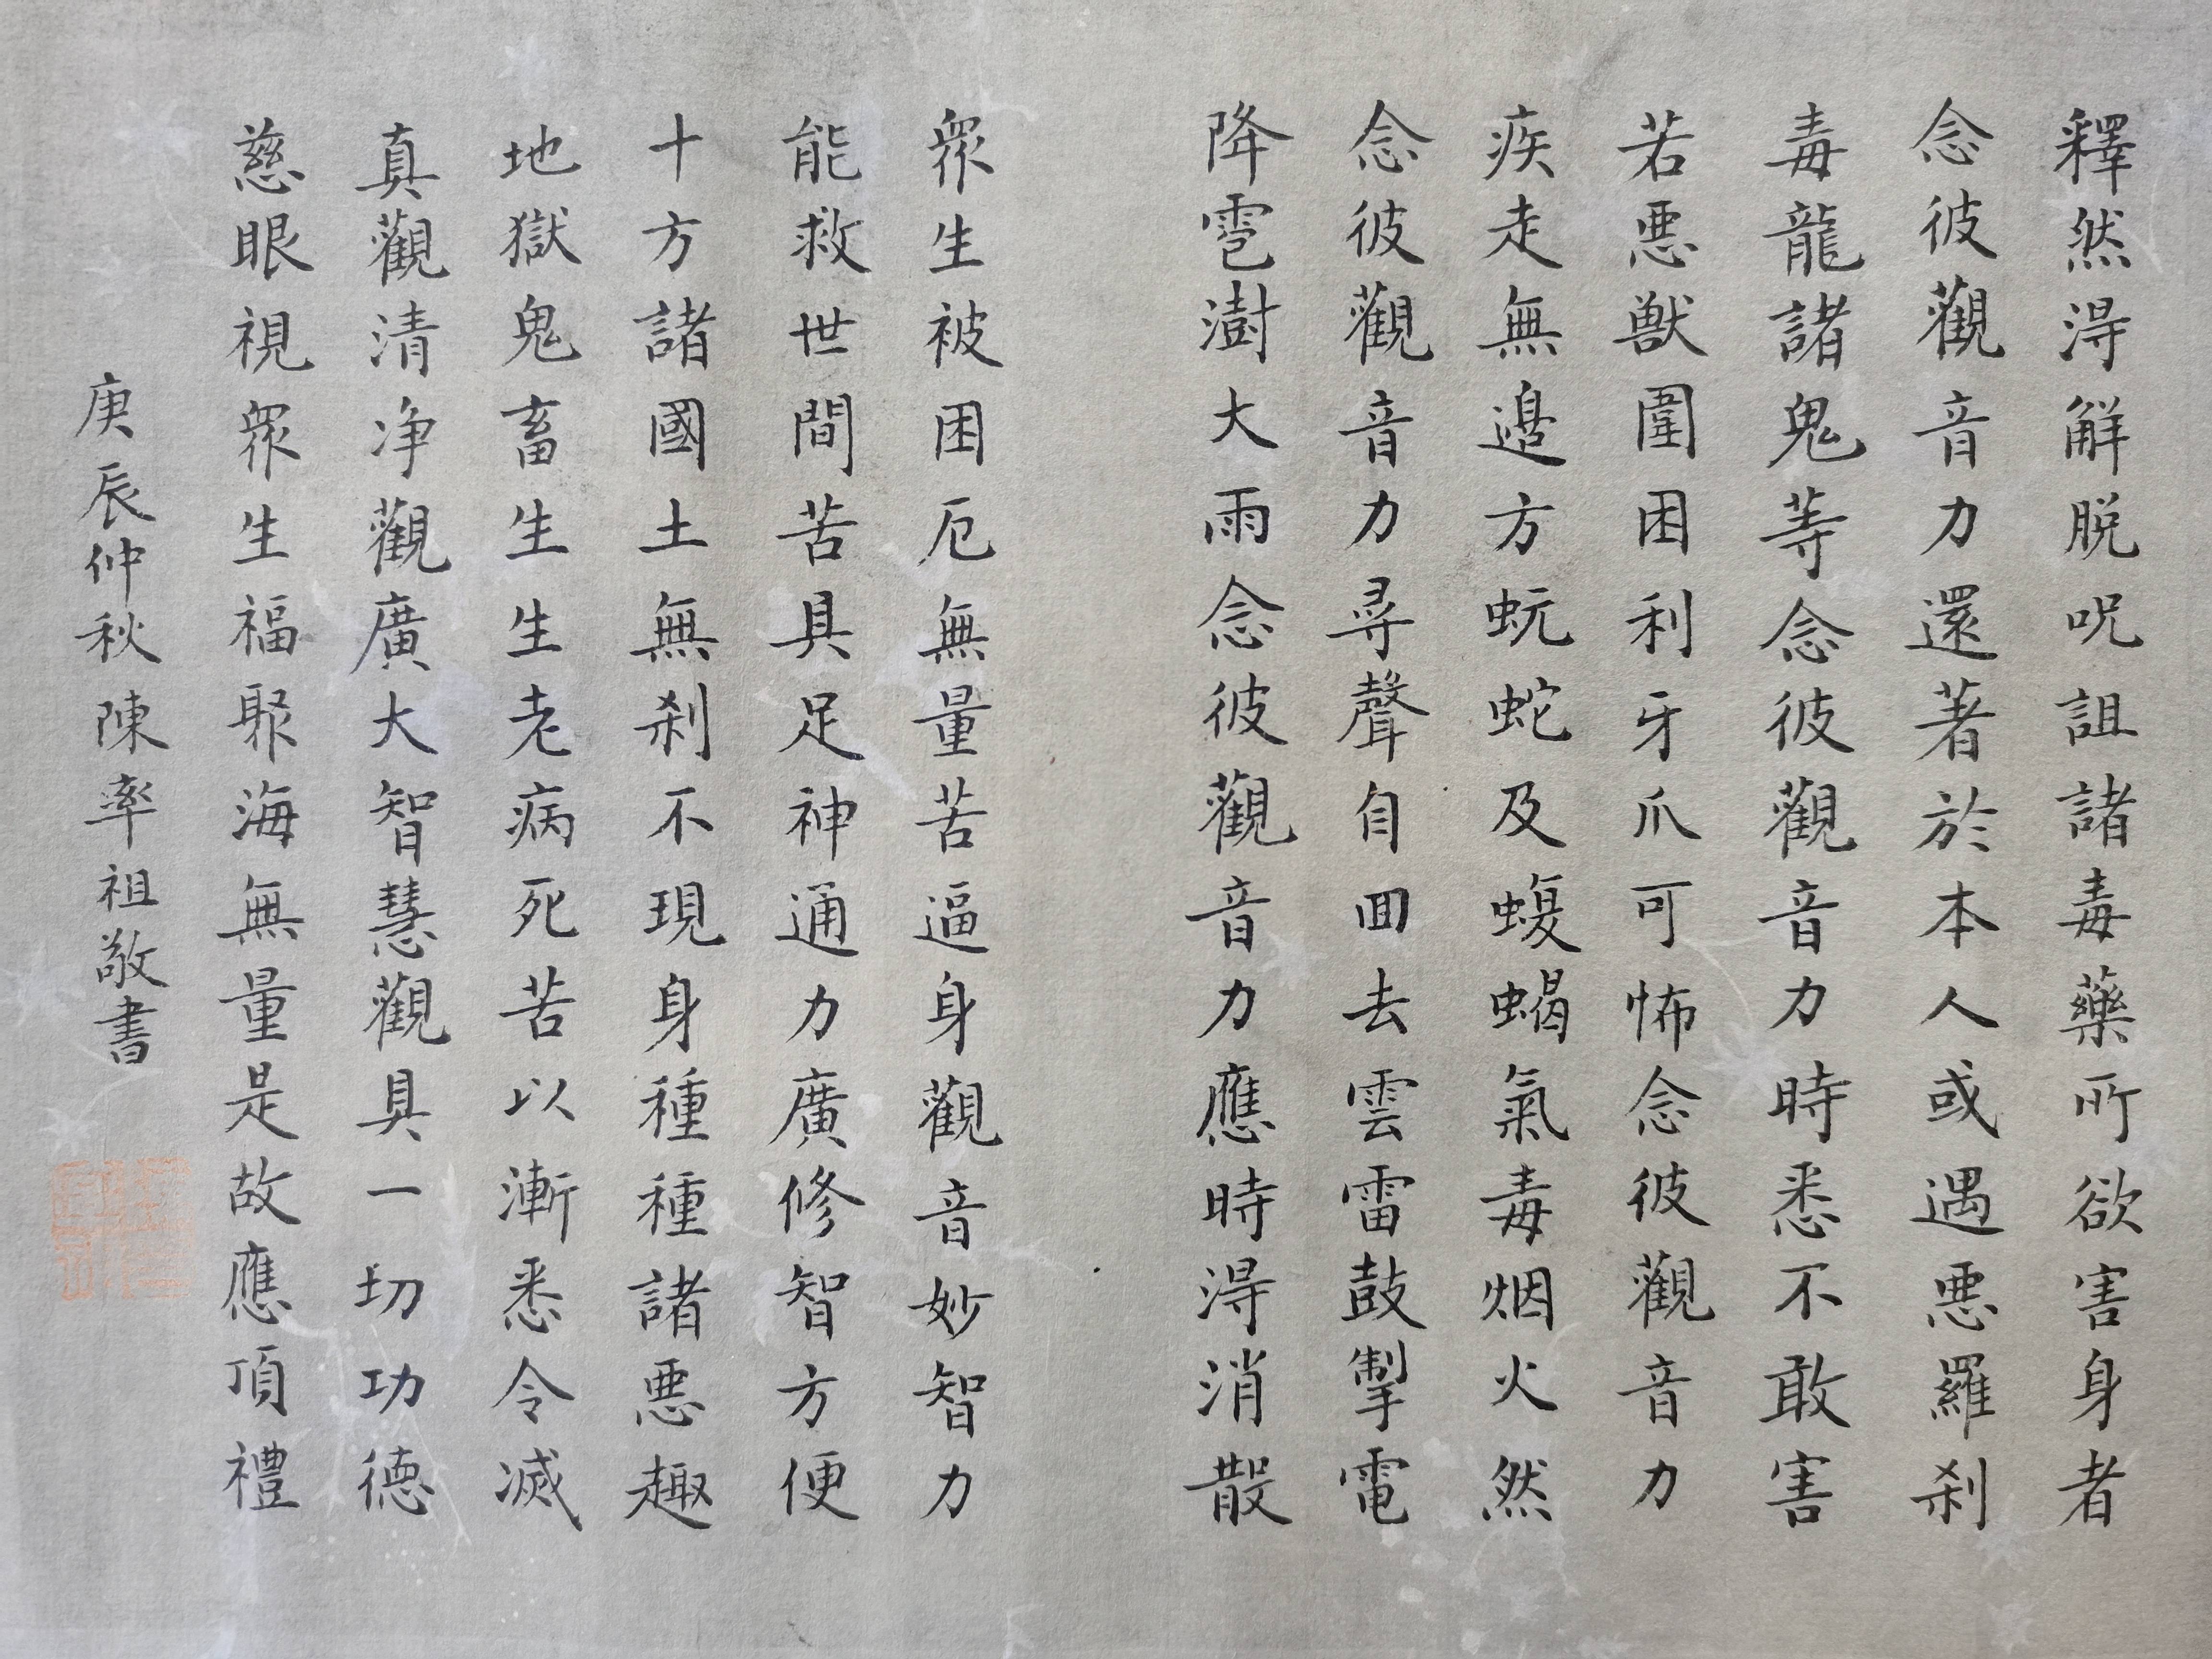 釋然淂解脱呪詛諸毒藥所欲害身者
念彼觀音力還著於本人或遇悪羅刹
毒龍諸鬼等念彼觀音力時悉不敢害
若悪獸圍困利牙爪可怖念彼觀音力
疾走無邊方蚖蛇及蝮蝎氣毒烟火然
念彼觀音力尋聲自回去雲雷鼓掣電
降雹澍大雨念彼觀音力應時淂消散
眾生被困厄無量苦逼身觀音妙智力
能救世間苦具足神通力廣修智方便
十方諸國土無刹不現身種種諸悪趣
地獄鬼畜生生老病死苦以漸悉令滅
真觀清净觀廣大智慧觀具一切功德
慈眼視眾生福聚海無量是故應頂禮
庚辰仲秋陳率祖敬書